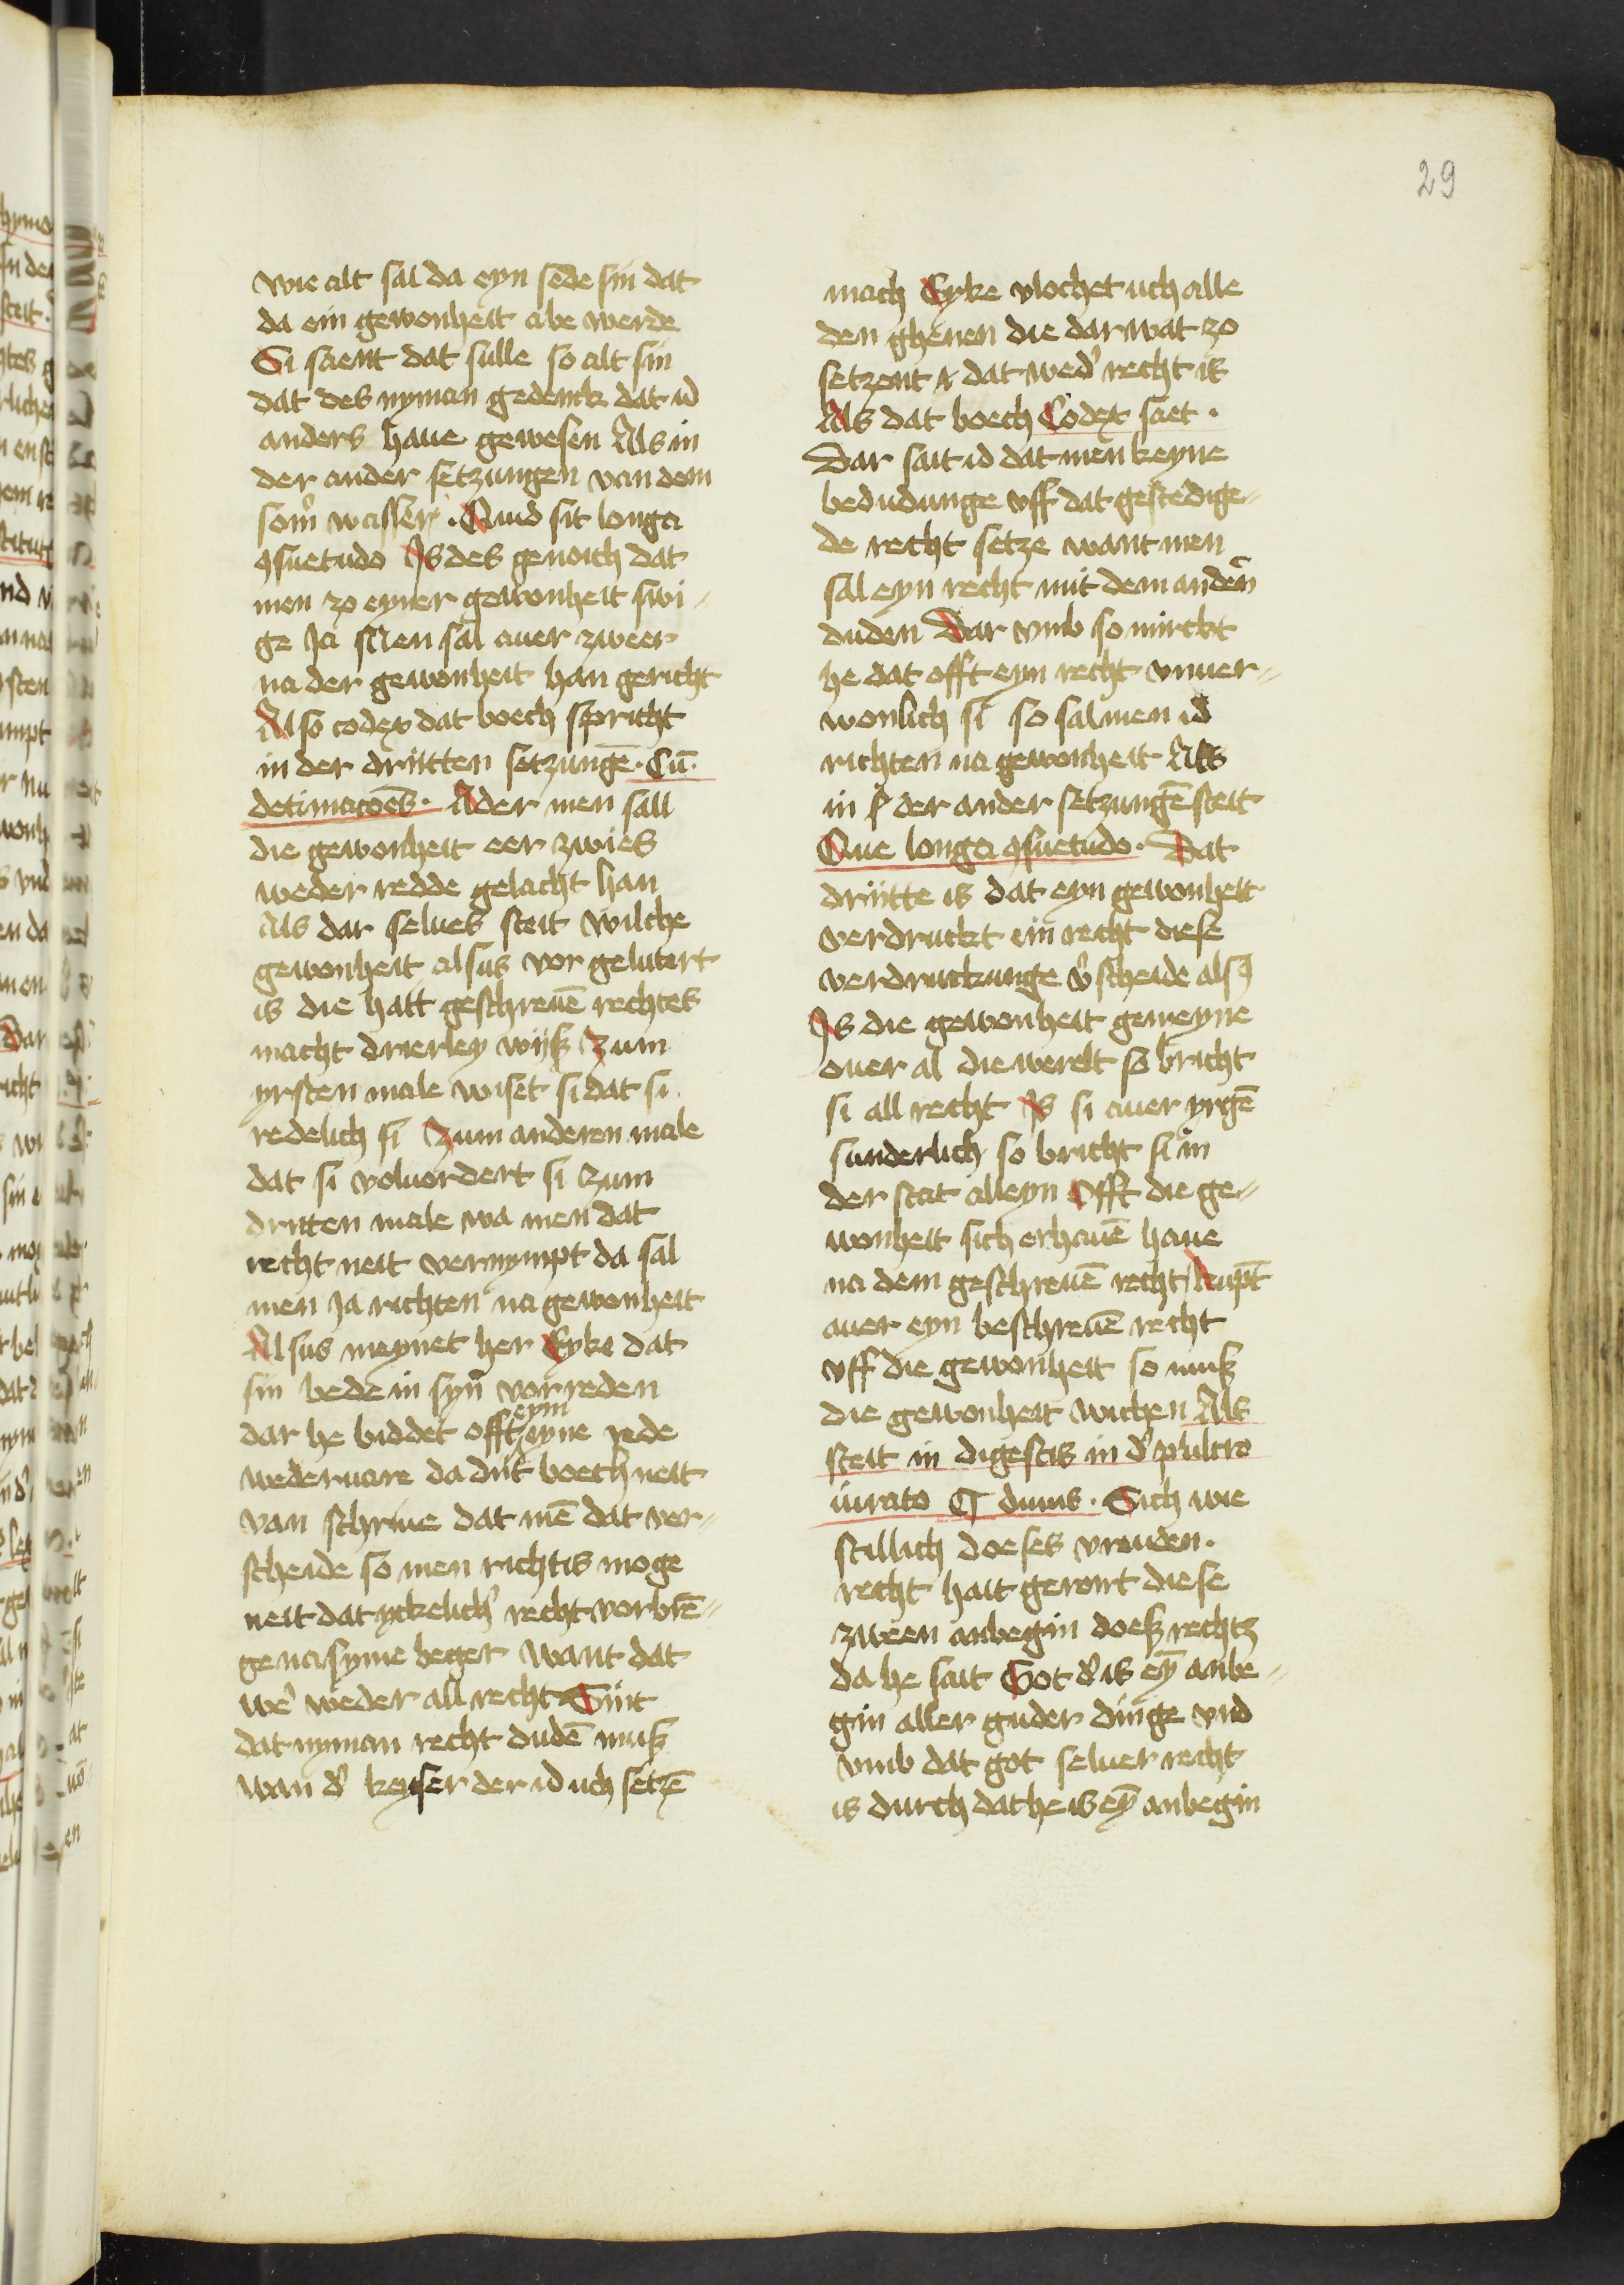 29
wie alt sal da eyn sede sin dat
da ein gewonheit abe werde
Si saent dat sulle so alt sin
dat des nyman gedenck dat id
anders haue gewesen Als in
der ander setzungen van dem
som̉ wasser . Quid sit longa
ꝯsuetudo Is des genoich dat
men zo eyner gewonheit swi-
ge Ja Men sal auer zweer
na der gewonheit han gericht
Also codex dat boech spricht
in der driitten setzungē . Cū
detimacoēs . Ader men sall
die gewonheit eer zwies
weder redde gelacht han
Als dar selues steit wilche
gewonheit alsus vor gelutert
is die hatt geschreuē rechtes
macht drierley wijß Zum
yrsten male wiset si dat si
redelich si Zum anderen male
dat si voluordert si Zum
dritten male wa men dat
recht neit vernympt da sal
men Ja richten na gewonheit
Alsus meynet her Eyke dat
sin bede in syn̄ vorreden
eym
dar he biddet offt eyne rede
wederuare da diit boech neit
van schriue dat mē dat ver-
scheide so men richtis moge
neit dat yckelich̉ recht vorbrē-
ge na syme beger Want dat
we̓ weder all recht Siit
dat nyman recht dudē muß
wan d̓ keyser der id uch setzē
mach Eyke vlochet uch alle
den ghenen die dar wat zo
setzent dat wed̓ recht is
Als dat boech Codex saet .
Dar sait id dat men keyne
bedudunge vff dat gestedige-
de recht setze want men
sal eyn recht mit dem anden̄
duden Dar vmb so mirckt
he dat offt eyn recht vnuer-
wonlich si so sal men id
richten na gewonheit Als
in der ander setzungē steit
Que longa ꝯsuetudo . Dat
driitte is dat eyn gewonheit
verdruckt ein recht diese
verdruckunge v̓scheide also
Is die gewonheit gemeyne
ouer al die werelt so bricht
si all recht Is si auer yrgē
sunderlich so bricht si in
der stat alleyn Offt die ge-
wonheit sich erhauē haue
na dem geschreuē recht kupt̄
auer eyn beschreuē recht
vff die gewonheit so muß
die gewonheit wichen Als
steit in digestis in d̓
iurato ¶ diuus . Sich wie
stillich doeses vrauden .
recht hait gerort diese
zween anbegin doeß rechtz
da he sait Got d̓ is eȳ anbe-
gin aller guder dinge vnd
vmb dat got seluer recht
is durch dat he is eȳ anbegin